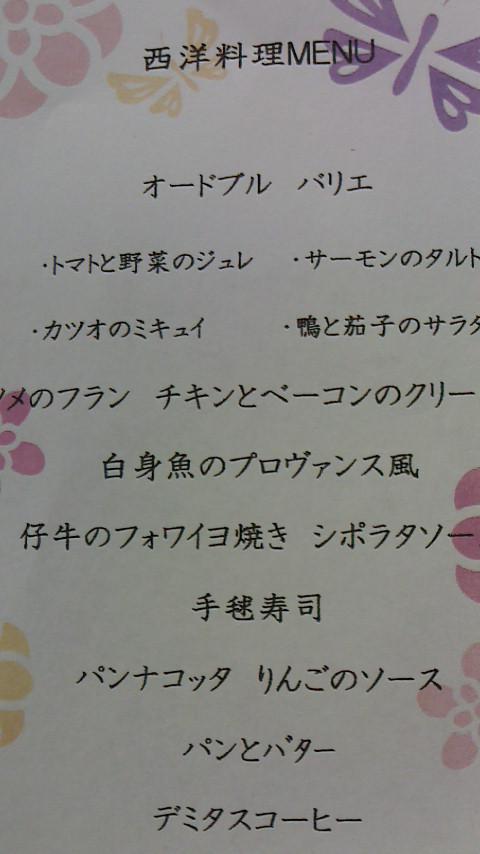 西洋料理MENU
オードブル バリエ
・トマトと野菜のジュレ ・サーモンのタルト
・カツオのミキュイ ・鴨と茄子のサラダ
メのフラン チキンとベーコンのクリー
白身魚のプロヴァンス風
仔牛のフォワイヨ焼き シポラタソー
手毬寿司
パンナコッタ りんごのソース
パンとバター
デミタスコーヒー